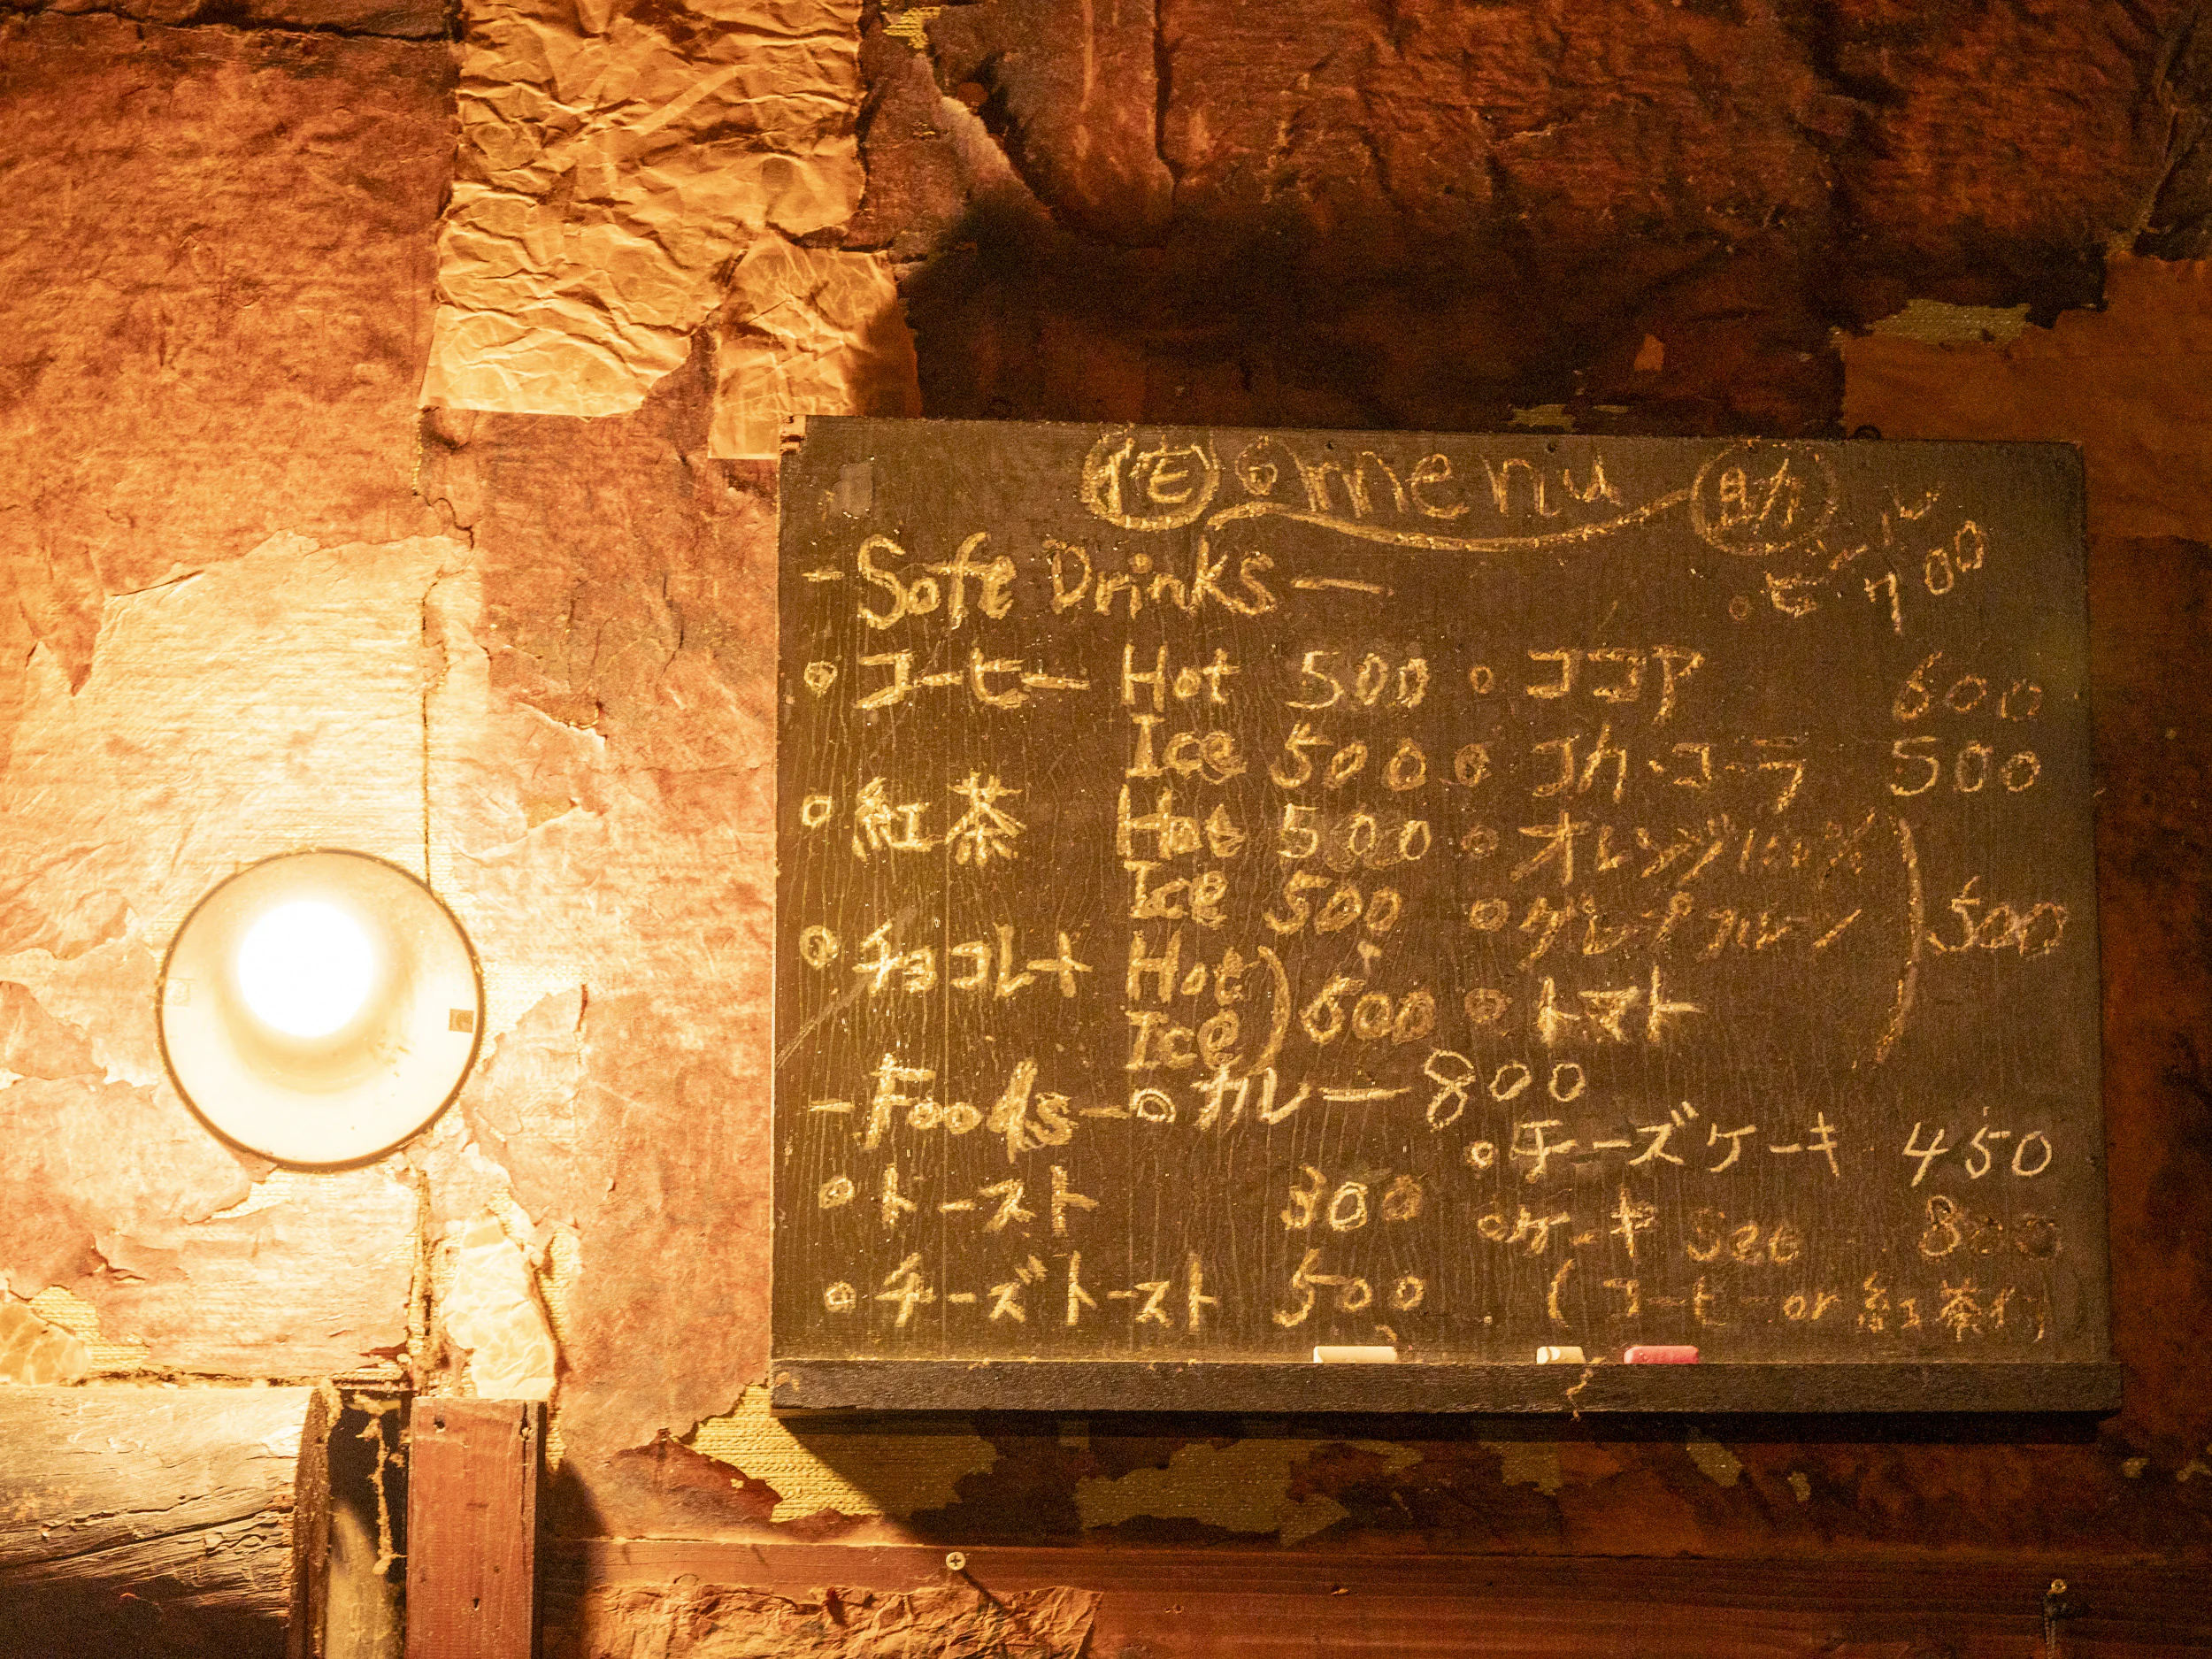 menu 助
ビール 700
- Soft Drinks -
○ コーヒー Hot 500
Ice 500
○ 紅茶 Hot 500
Ice 500
○ チョコレート Hot
Ice ) 600
○ ココア 600
○ コカ・コーラ 500
○ オレンジ 100%
○ グレープフルーツ
○ トマト
) 500
- Foods - ○ カレー 800
○ トースト 300
○ チーズトースト 500
○ チーズケーキ 450
○ ケーキ Set 800
(コーヒー or 紅茶付)